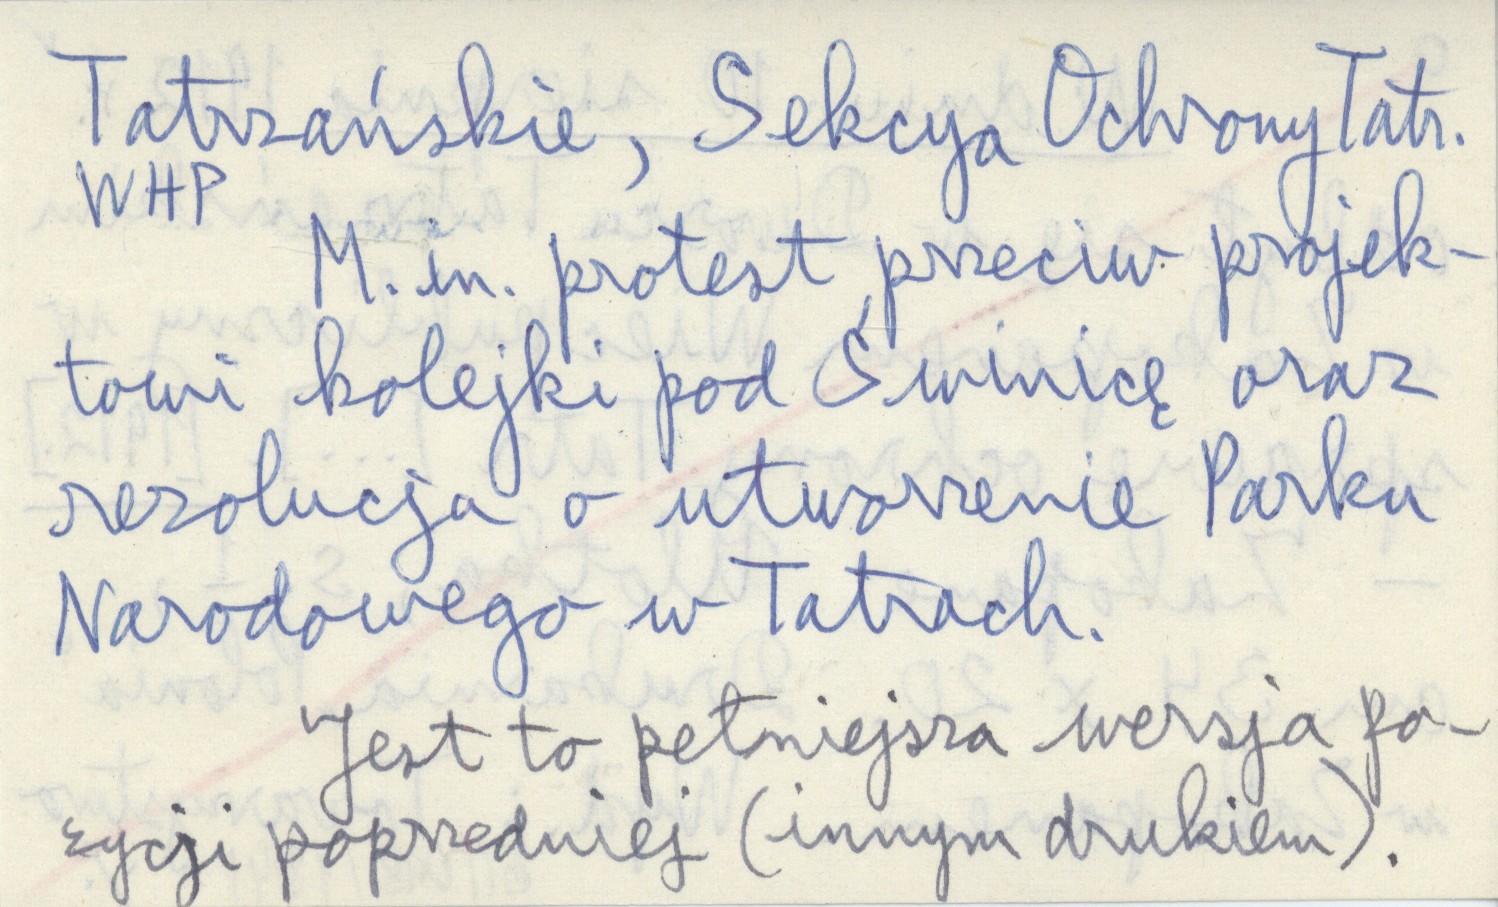 Tatrzańskie, Sekcya Ochrony Tatr.
WHP
M. in. protest przeciw projek-
towi kolejki pod Świnicę oraz
rezolucja o utworzenie Parku
Narodowego w Tatrach.
Jest to pełniejsza wersja po-
zycji poprzedniej (innym drukiem).